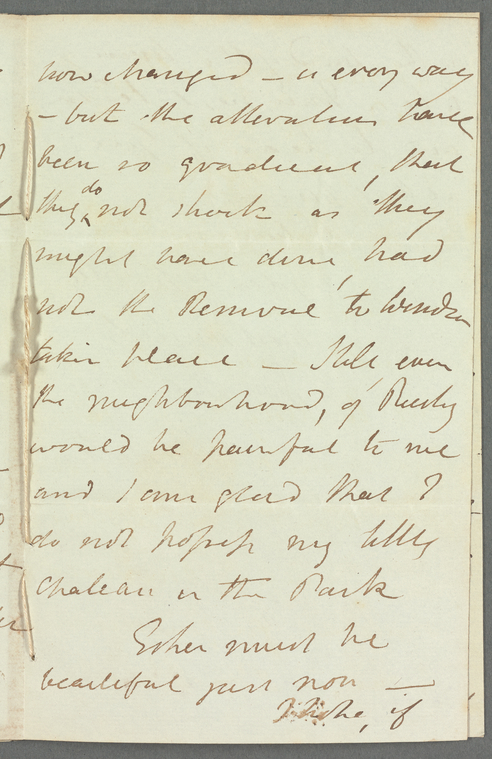 how changed – in every way
– but the alterations have
been so gradual, that
they do not shock as they
might have done, had
not the Removal to Windsor
taken place – Still, even
the neighbourhood, of Bushy
would be painful to me
and I am glad that I
do not possess my little
Chateau in the Park
Esher must be
beautiful just now –
if